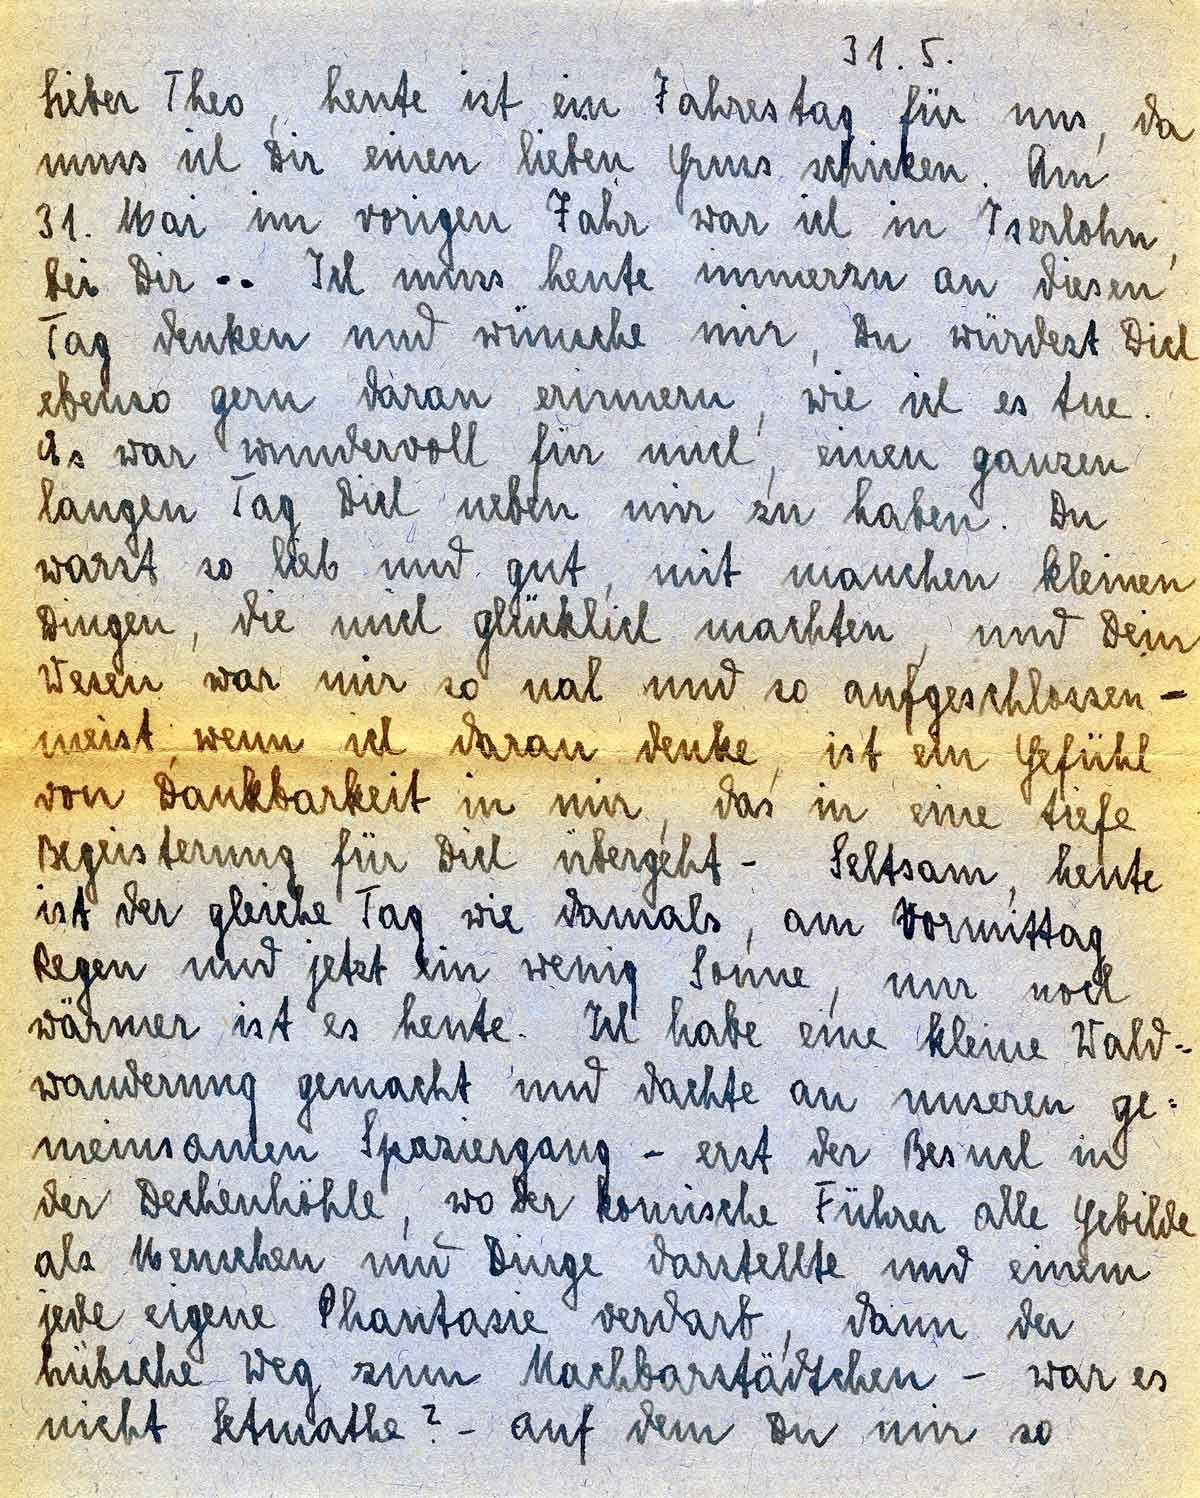 31.5.
Lieber Theo, heute ist ein Jahrestag für uns, da
muss ich Dir einen lieben Gruss schicken. Am
31. Mai im vorigen Jahr war ich in Iserlohn,
bei Dir .. Ich muss heute immerzu an diesen
Tag denken und wünsche mir, Du würdest Dich
ebenso gern daran erinnern, wie ich es tue.
Es war wundervoll für mich, einen ganzen
langen Tag Dich neben mir zu haben. Du
warst so lieb und gut, mit manchen kleinen
Dingen, die mich glücklich machten, und Dein
Wesen war mir so nah und so aufgeschlossen -
meist, wenn ich daran denke, ist ein Gefühl
von Dankbarkeit in mir, das in eine tiefe
Begeisterung für Dich übergeht - Seltsam, heute
ist der gleiche Tag wie damals, am Vormittag
Regen und jetzt ein wenig Sonne, nur noch
wärmer ist es heute. Ich habe eine kleine Wald-
wanderung gemacht und dachte an unseren ge=
meinsamen Spaziergang - erst der Besuch in
der Dechenhöhle, wo der komische Führer alle Gebilde
als Menschen und Dinge darstellte und einem
jede eigene Phantasie verdarb, dann der
hübsche Weg zum Nachbarstädtchen - war es
nicht Letmathe? - auf dem Du mir so